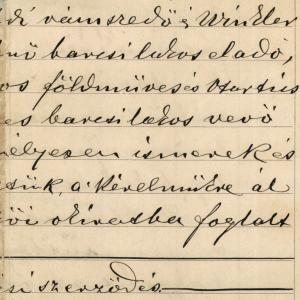 di vámszedő és Winkler
barcsi lakos eladó,
os földmüves és
es barcsi lakos vevő
élyesen ismerek és
tük, a kérelmükre ál
ői okiratba foglalt
si szerződés